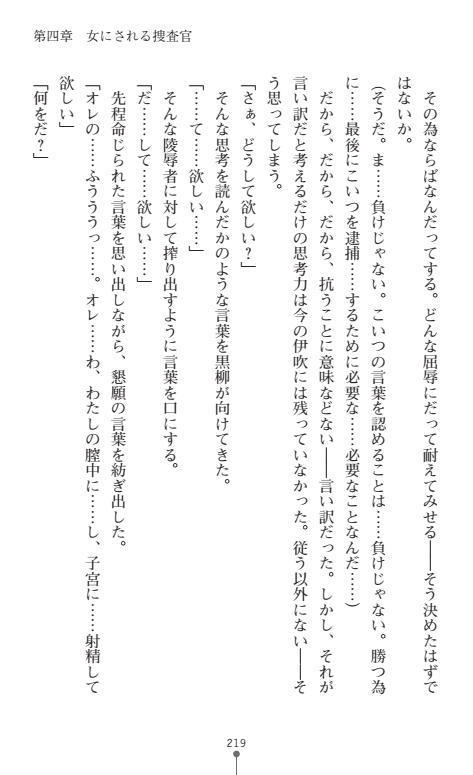 第四章　女にされる捜査官
　その為ならばなんだってする。どんな屈辱にだって耐えてみせる――そう決めたはずで
はないか。
（そうだ。ま……負けじゃない。こいつの言葉を認めることは……負けじゃない。勝つ為
に……最後にこいつを逮捕……するために必要な……必要なことなんだ……）
　だから、だから、だから、抗うことに意味などない――言い訳だった。しかし、それが
言い訳だと考えるだけの思考力は今の伊吹には残っていなかった。従う以外にない――そ
う思ってしまう。
「さぁ、どうして欲しい？」
　そんな思考を読んだかのような言葉を黒柳が向けてきた。
「……て……欲しい……」
　そんな陵辱者に対して搾り出すように言葉を口にする。
「だ……して……欲しい……」
　先程命じられた言葉を思い出しながら、懇願の言葉を紡ぎ出した。
「オレの……ふうううっ……。オレ……わ、わたしの膣中に……し、子宮に……射精して
欲しい」
「何をだ？」
219